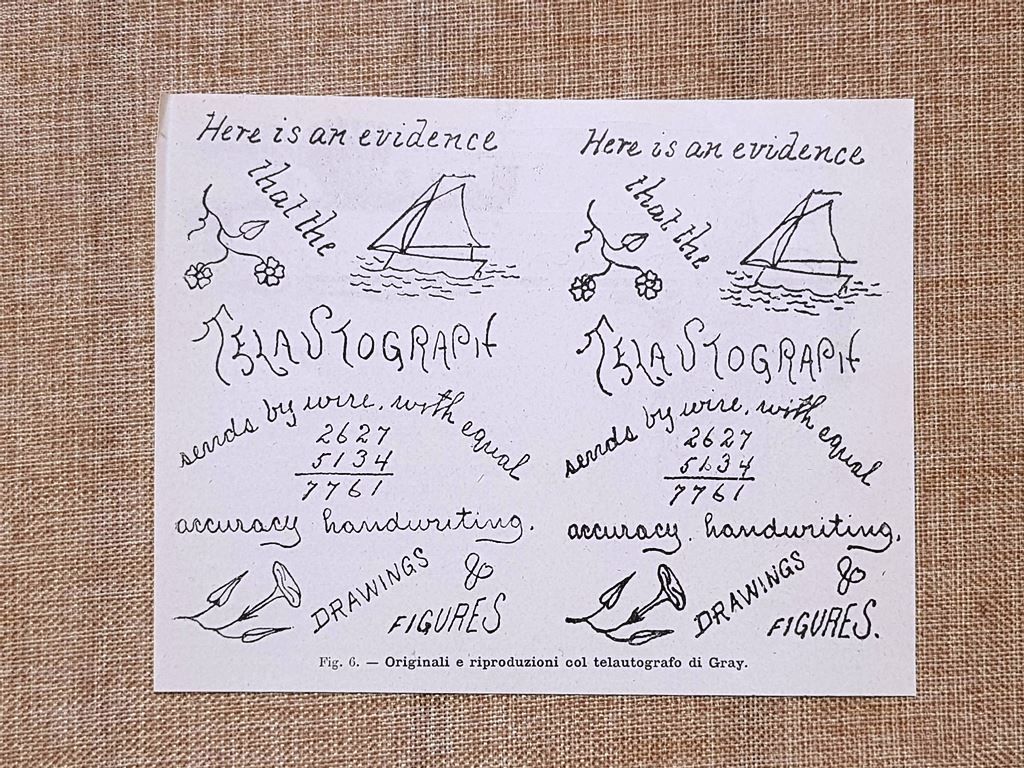 Here is an evidence
that the
TELAUTOGRAPH
sends by wire, with equal
2627
5134
7761
accuracy handwriting,
DRAWINGS &
FIGURES
Here is an evidence
that the
TELAUTOGRAPH
sends by wire, with equal
2627
5134
7761
accuracy. handwriting,
DRAWINGS &
FIGURES.
Fig. 6. — Originali e riproduzioni col telautografo di Gray.